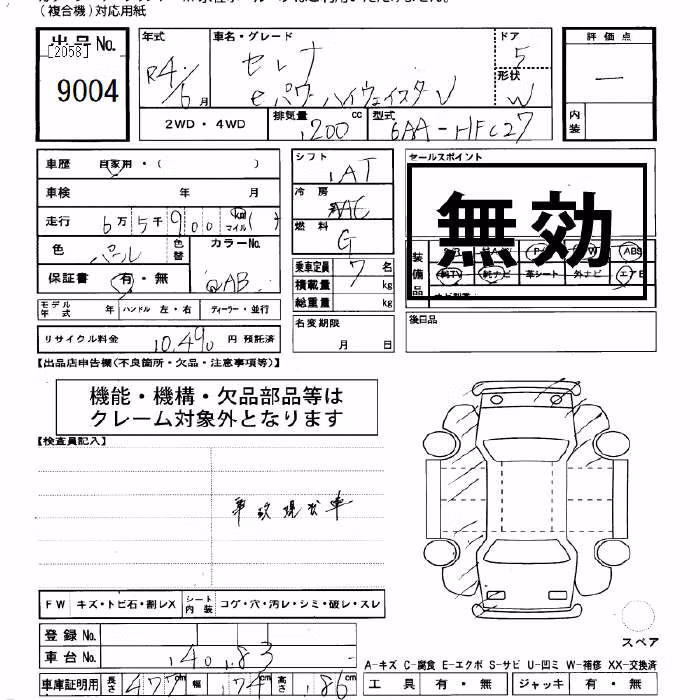 (複合機)対応用紙
出品No. [2058] 9004
年式 R4/6月
車名・グレード セレナ
eパワ ハイウェイスタV
ドア 5
形状 W
2WD・4WD 排気量 1200 cc 型式 6AA-HFC27
評価点 —
内装
車歴 自家用・( )
車検 年 月
走行 6万5千900 km マイル
色 パール 色替 カラーNo. QAB
保証書 有・無
モデル年式 年 ハンドル 左・右 ディーラー・並行
リサイクル料金 10,490 円 預託済
シフト AT
冷房 AAC
燃料 G
乗車定員 7 名
積載量 kg
総重量 kg
名変期限 月 日
セールスポイント
無効
装備品 ABS
純TV 純ナビ 革シート 外ナビ エアB
後日品
【出品店申告欄(不良箇所・欠品・注意事項等)】
機能・機構・欠品部品等は
クレーム対象外となります
【検査員記入】
事故現状車
FW キズ・トビ石・割レX シート内装 コゲ・穴・汚レ・シミ・破レ・スレ
登録No.
車台No. 140183
車庫証明用 長さ 477cm 幅 174cm 高さ 186cm
スペア
A-キズ C-腐食 E-エクボ S-サビ U-凹ミ W-補修 XX-交換済
工具 有・無 ジャッキ 有・無